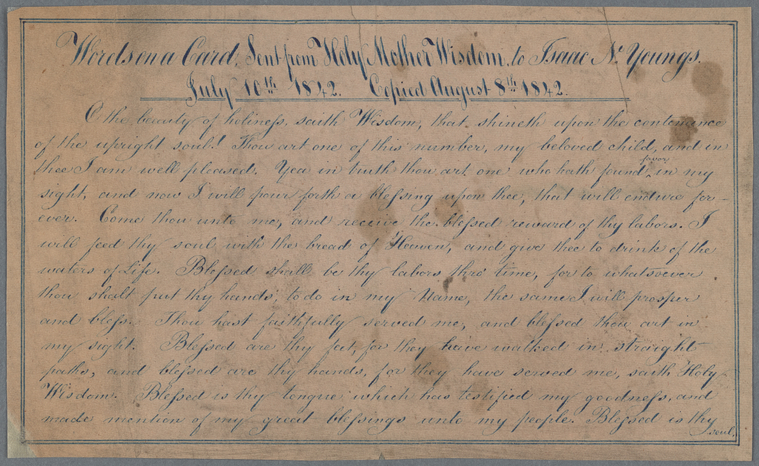 Words on a Card, Sent from Holy Mother Wisdom, to Isaac N. Youngs,
July 10th 1842. Copied August 8th 1842.
O the beauty of holiness, saith Wisdom, that shineth upon the contenance
of the upright soul! Thou art one of this number, my beloved child, and in
thee I am well pleased. Yea in truth thou art one who hath found favor in my
sight, and now I will pour forth a blessing upon thee, that will endure for-
ever. Come thou unto me, and receive the blessed reward of thy labors. I
will feed thy soul with the bread of Heaven, and give thee to drink of the
waters of Life. Blessed shall be thy labors thro' time, for to whatsoever
thou shalt put thy hands, to do in my Name, the same I will prosper
and bless. Thou hast faithfully served me, and blessed thou art in
my sight. Blessed are thy feet for they have walked in straight
paths, and blessed are thy hands, for they have served me, saith Holy
Wisdom. Blessed is thy tongue which has testified my goodness, and
made mention of my great blessings unto my people. Blessed is thy
soul,